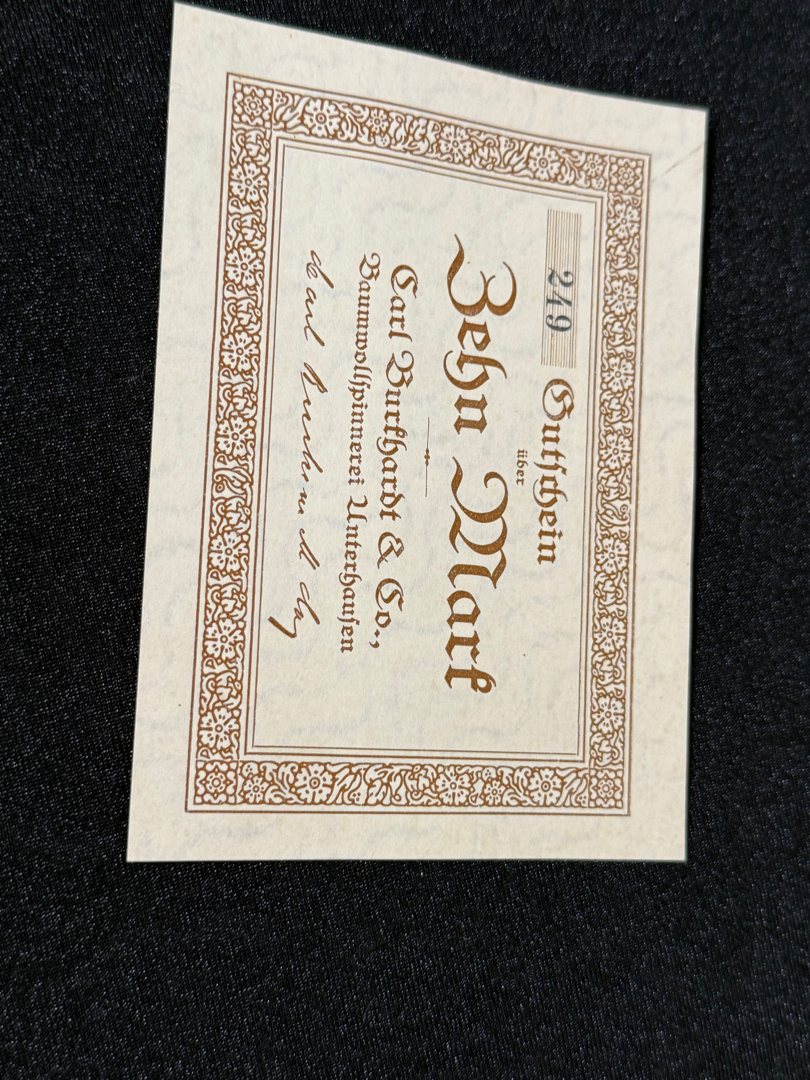 249
Gutschein
über
Zehn Mark
Carl Burkhardt & Co.,
Baumwollspinnerei Unterhausen
Carl Burkhardt & Co